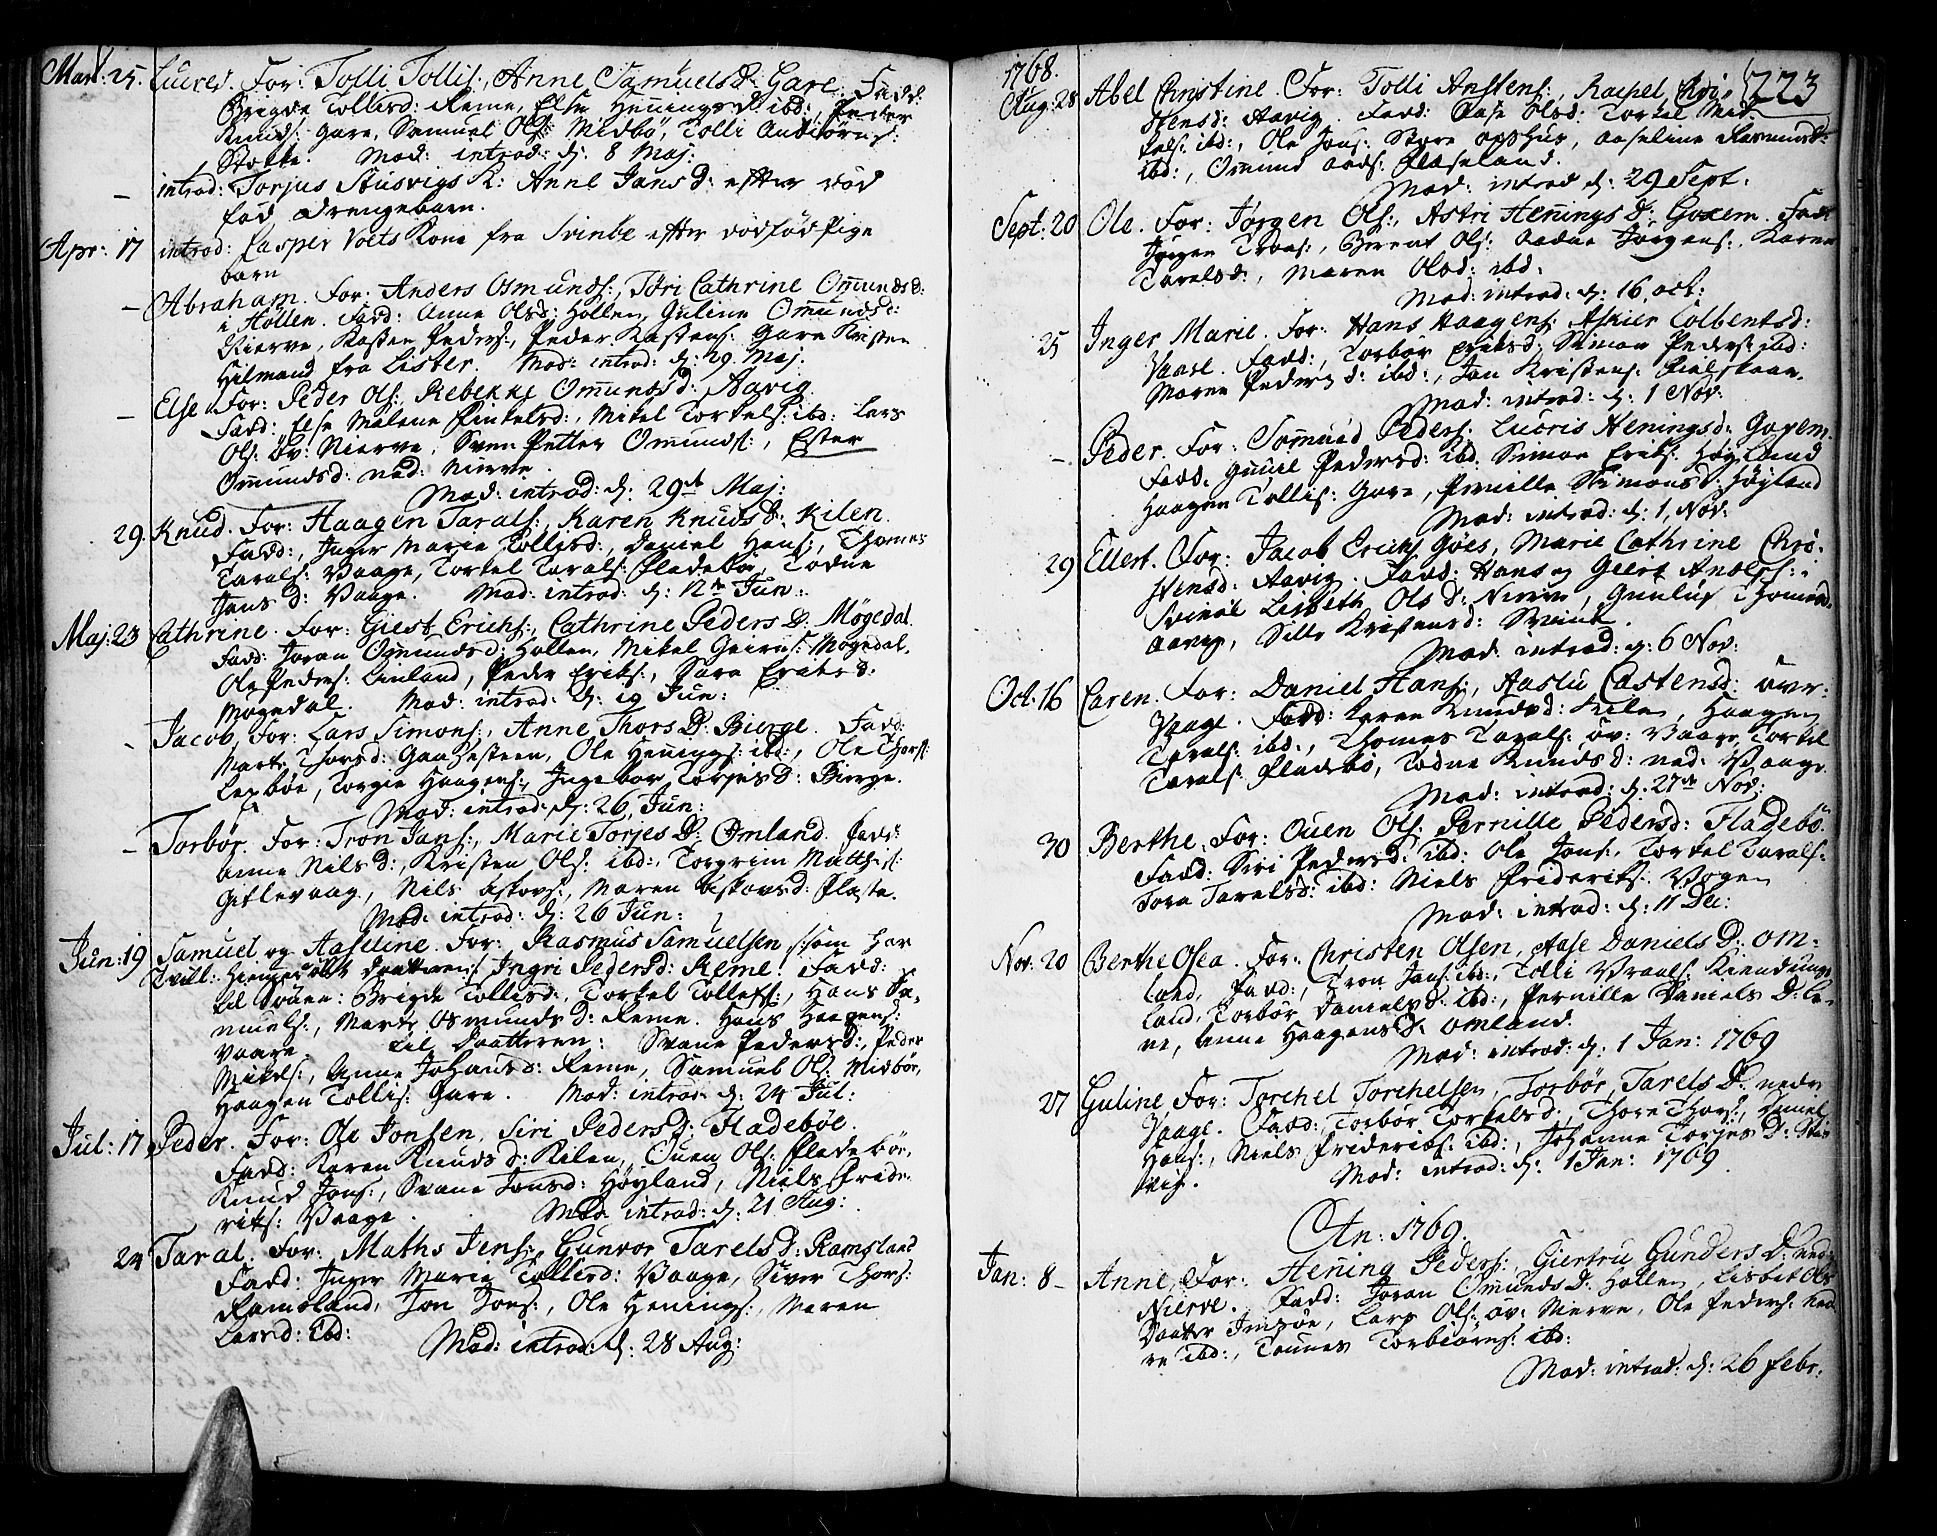 Mart: 25. Lucres. For: Tolli Tollis:, Anne Samuels D: Gare. Fadd:
Brigde Tollisd: Reme, Else Henings D: ibd:, Peder
Knuds: Gare, Samuel Ols: Midbö, Tolli
Stokke. Mod: introd: d: 8 Maj:
— introd: Torjus Stusvigs K: Anne Jans D: efter död
föd drengebarn.
Apr: 17 introd: Casper Voets Kone fra Svinöe efter dödföd Pige
barn
— Abraham. For: Anders Osmunds:, Töri Cathrine Omundsd:
i Hollen. Fadd: Anne Olsd: Hollen, Guline Omundsd:
Nierve, Kasten Peders:, Peder Kastens: Gare Kristen
Hilmand fra Lister. Mod: introd: d: 29 Maj:
— Else For: Peder Ols:, Rebekke Omunds D: Aavig
Fadd: Else Malene Finkelsd:, Mikel Torkels: ibd: Lars
Ols: öv: Nierve, Sven Petter Omunds:, Ester
Omundsd: ned: Nierve.
Mod: introd: d: 29de Maj:
29. Knud. For: Haagen Tarals:, Karen Knuds D: Kilen.
Fadd:, Inger Marie Tollisd:, Daniel Hans:, Thomes
Tarals: Vaage, Torkel Tarals: Fladebö, Todne
Jans D: Vaage. Mod: introd: d: 12te Jun:
Maj: 23 Cathrine. For: Giest Erichs:, Cathrine Peders D: Mögedal.
Fadd: Joran Omundsd: Hollen, Mikel Geirus: Mögedal,
Ole Peders: Linland, Peder Eriks:, Sara Eriksd:
Mögedal. Mod: introd: d: 19 Jun:
— Jacob, For: Lars Simons:, Anne Thors D: Bierge. Fadd:
Marte Thorsd: Gaasesteen, Ole Henings: ibd:, Ole Thors:
Lexböe, Torgie Haagens:, Ingebor Torjusd: Bierge.
Mod: introd: d: 26 Jun:
— Torbör. For: Tron Jans:, Marie Torjes D: Omland. Fadd:
Anne Nils D:, Kristen Ols: ibd:, Torgrim Matths:
Gitlevaag, Nils Askovs:, Maren Askovsd: Flaste.
Mod: introd: d: 26 Jun:
Jun: 19 Samuel og Aaseline. For: Rasmus Samuelsen som har
Tvill: Ingri Pedersd: Reme. Fadd:
til Sönen: Brigde Tollisd:, Torkel Tollefs:, Hans Sa-
muels:, Marte Osmunds D: Reme. Hans Haagens:
Vaare. til Daatteren: Svane Pedersd:, Peder
Mikels:, Anne Johansd: Reme, Samuel Ols: Midbö,
Haagen Tollis: Gare. Mod: introd: d: 24 Jul:
Jul: 17 Peder. For: Ole Jonsen, Siri Pedersd: Fladeböe.
Fadd: Karen Knuds D: Kilen, Ouen Ols: Fladebö,
Knud Jons:, Svane Jonsd: Höyland, Niels Fride-
riks: Vaage. Mod: introd: d: 21 Aug:
24 Taral. For: Maths Jens:, Gunvor Tarelsd: Ramsland
Fadd: Inger Marie Tollisd: Vaage, Siver Thors:
Ramsland, Jon Jons:, Ole Henings:, Maren
Larsd: ibd:
Mod: introd: d: 28 Aug:
1768.
223
Aug: 28 Abel Christine. For: Tolli Anstens:, Rachel Chri-
stensd: Aavig. Fadd: Aase Olsd: Torkel
ibd:, Ole Jons: Store opshus, Aaseline Rasmusd:
ibd:, Omund Aads: Flaseland.
Mod: introd: d: 29 Sept.
Sept: 20 Ole. For: Jörgen Ols:, Astri Henings D: Goxem. Fadd
Jörgen Trons:, Berent Ols: Aadne Jörgens:, Karen
Tarelsd:, Maren Olsd: ibd:
Mod: introd: d: 16, oct:
25 Inger Marie. For: Hans Haagens: Askier Tolbentsd:
Vaare. Fadd:, Torbör Eriksd:, Simon Peders: ibd:
Maren Peders D: ibd:, Jon Kristens: Fielskaar.
Mod: introd: d: 1 Nov:
— Peder. For: Samuel Peders: Lucris Heningsd: Goxem
Fadd: Guuel Pedersd: ibd: Simon Eriks: Höyland
Haagen Tollis: Gare, Pernille Simonsd: Höyland
Mod: introd: d: 1, Nov:
29 Ellert. For: Jacob Erichs: Göes, Marie Cathrine Chri-
stensd: Aavig. Fadd: Hans og Geert Anders: i
Svinöe Lisbeth Ols D: Nierve, Gunluf
Aavig, Sille Kristensd: Svinöe.
Mod: introd: d: 6 Nov:
Oct: 16 Caren. For: Daniel Hans:, Aaslu Castensd: över:
Vaage. Fadd: Karen Knudsd: Kilen, Haagen
Tarals: ibd:, Thomes Tarals: öv: Vaage, Torkel
Tarals: Fladebö, Todne Knudsd: ned: Vaage.
Mod: introd: d: 27de Nov:
30 Berthe. For: Ouen Ols: Pernille Pedersd: Fladebö.
Fadd: Siri Pedersd: ibd: Ole Jons:, Torkel Tarals:
Tora Tarelsd: ibd: Niels Frideriks: Vogen
Mod: introd: d: 11 Dec:
Nov: 20 Berthe Olea. For: Christen Olsen, Aase Daniels D: Om-
land, Fadd:, Tron Jans: ibd:, Tolli Vraals: Kiendings-
land, Torbör Danielsd: ibd:, Pernille Daniels D: Le-
ne, Anne Haagensd: Omland.
Mod: introd: d: 1 Jan: 1769
27 Guline, For: Torchel Torchelsen, Torbör Tarels D: nedr
Vaage. Fadd: Torbör Torkelsd:, Thore Thors:, Daniel
Hans:, Niels Friderics: ibd:, Johanne Torjes D: Stus-
vig. Mod: introd: d: 1 Jan: 1769.
An: 1769.
Jan: 8 — Anne, For: Hening Peders:, Giertru Gunders D: ned:
Nierve. Fadd: Joran Omunds D: Hollen, Lisbet Ols
Daatter Imsöe, Lars Ols: öv: Nierve, Ole Peders: Ned
re ibd:, Tounes Torbiörns: ibd:
Mod: introd: d: 26 Febr: